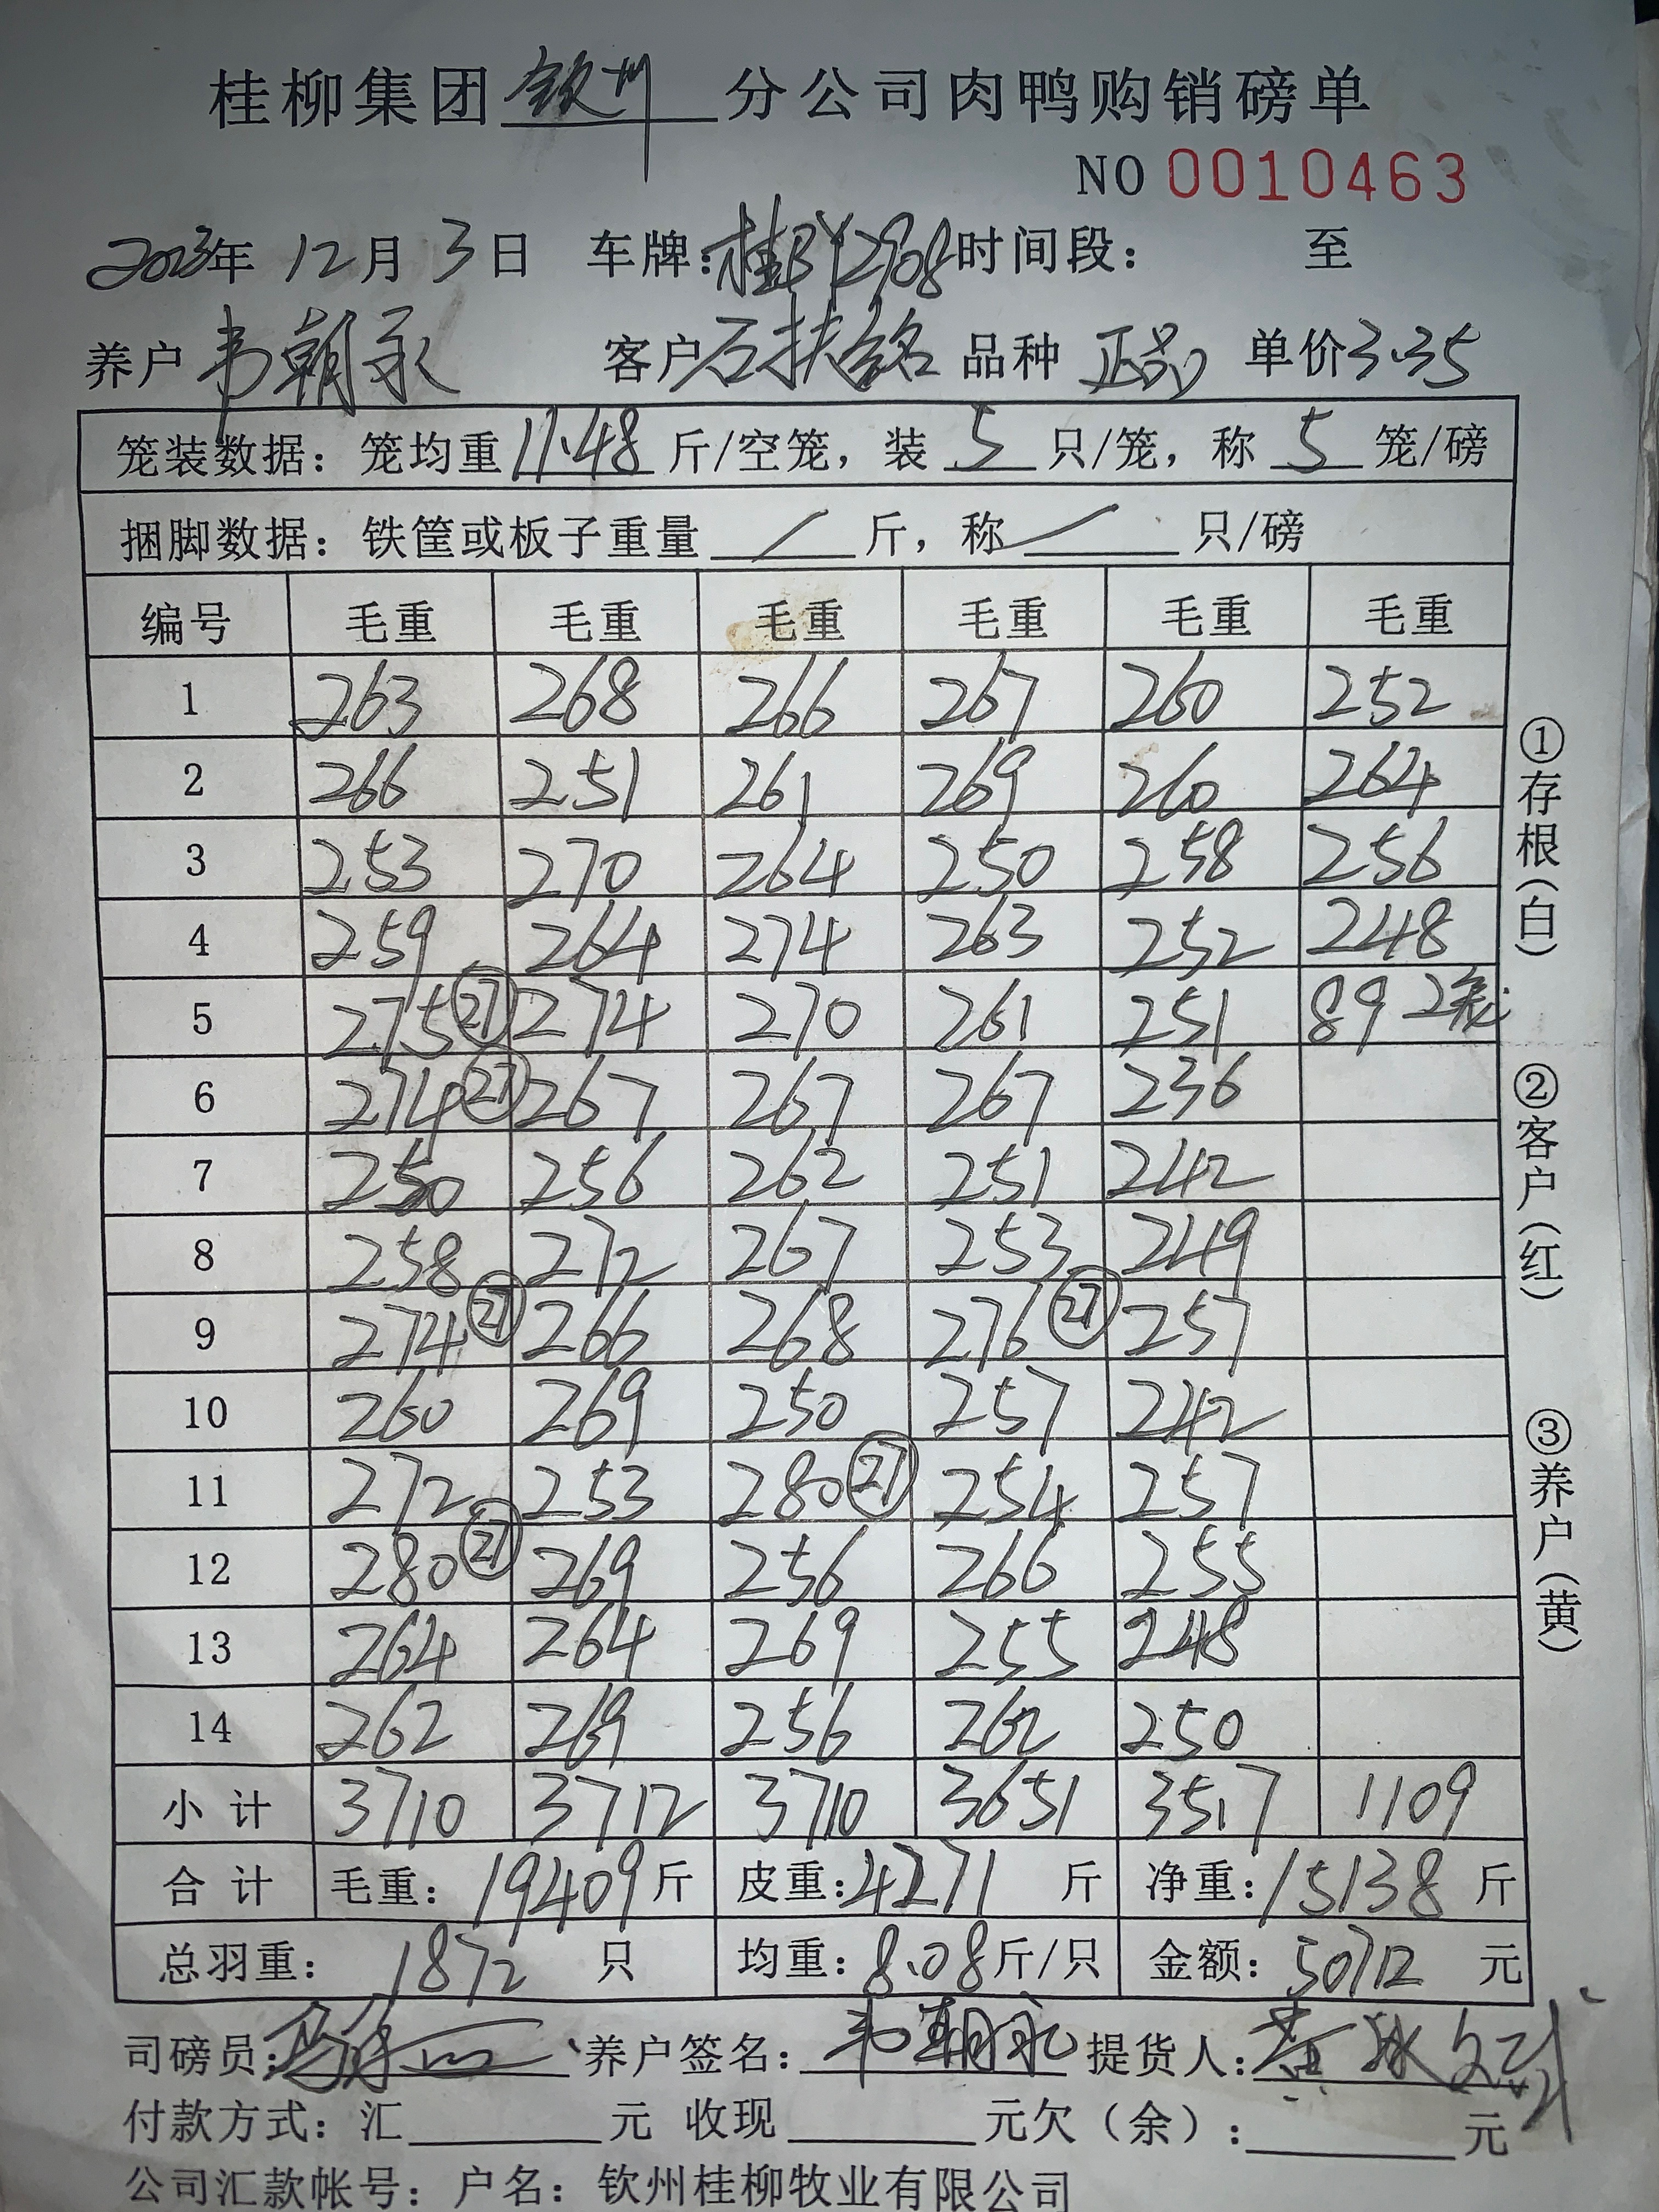 桂柳集团钦州分公司肉鸭购销磅单
NO 0010463
2023年 12月 3日 车牌:桂BY2908时间段: 至
养户 韦朝承 客户 石扶铭 品种 正品 单价3.35
笼装数据:笼均重11.48斤/空笼,装 5 只/笼,称 5 笼/磅
捆脚数据:铁筐或板子重量 / 斤,称 / 只/磅
编号 毛重 毛重 毛重 毛重 毛重 毛重
1 263 268 266 267 260 252
2 266 251 261 269 260 264
3 253 270 264 250 258 256
4 259 264 274 263 252 248
5 275 ㉗ 274 270 261 251 89 2笼
6 274 ㉗ 267 267 267 236
7 250 256 262 251 242
8 258 272 267 253 249
9 274 ㉗ 266 268 276 ㉗ 257
10 260 269 250 257 242
11 272 253 280 ㉗ 254 257
12 280 ㉗ 269 256 266 255
13 264 264 269 255 248
14 262 269 256 262 250
小计 3710 3712 3710 3651 3517 1109
合计 毛重:19409斤 皮重:4271 斤 净重:15138 斤
总羽重: 1872 只 均重:8.08斤/只 金额:50712 元
司磅员: 养户签名:韦朝承 提货人:
付款方式:汇 元 收现 元欠(余): 元
公司汇款帐号:户名:钦州桂柳牧业有限公司
①存根(白)
②客户(红)
③养户(黄)